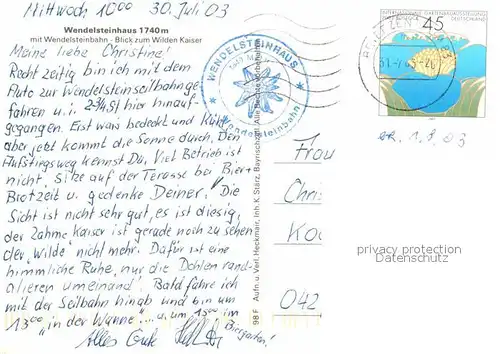 Mittwoch 10⁰⁰ 30. Juli 03
Wendelsteinhaus 1740 m
mit Wendelsteinbahn - Blick zum Wilden Kaiser
Meine liebe Christine!
Recht zeitig bin ich mit dem
Auto zur Wendelsteinseilbahn ge-
fahren u. i. hier hinauf-
gegangen. Erst war's bedeckt und kühl
aber jetzt kommt die Sonne durch. Den
Aufstiegsweg kennst Du. Viel Betrieb ist
nicht. Sitze auf der Terasse bei Bier +
Brotzeit u. gedenke Deiner. Die
Sicht ist nicht sehr gut, es ist diesig,
der Zahme Kaiser ist gerade noch zu sehen
der "Wilde" nicht mehr. Dafür ist eine
himmliche Ruhe, nur die Dohlen rand-
alieren umeinand. Bald fahre ich
mit der Seilbahn hinab und bin um
13⁰⁰ "in der Wanne"... u. um 15⁰⁰ im
Biergarten!
Alles Gute
WENDELSTEINHAUS
Wendelsteinbahn
98 F Aufn. u. Verl. Heckmair, Inh. K. Starz, Bayrischzell, Alle Rechte vorbehalten
INTERNATIONALE GARTENBAUAUSSTELLUNG
DEUTSCHLAND
45
1.8.03
Frau
Chri
Koc
042
privacy protection
Datenschutz